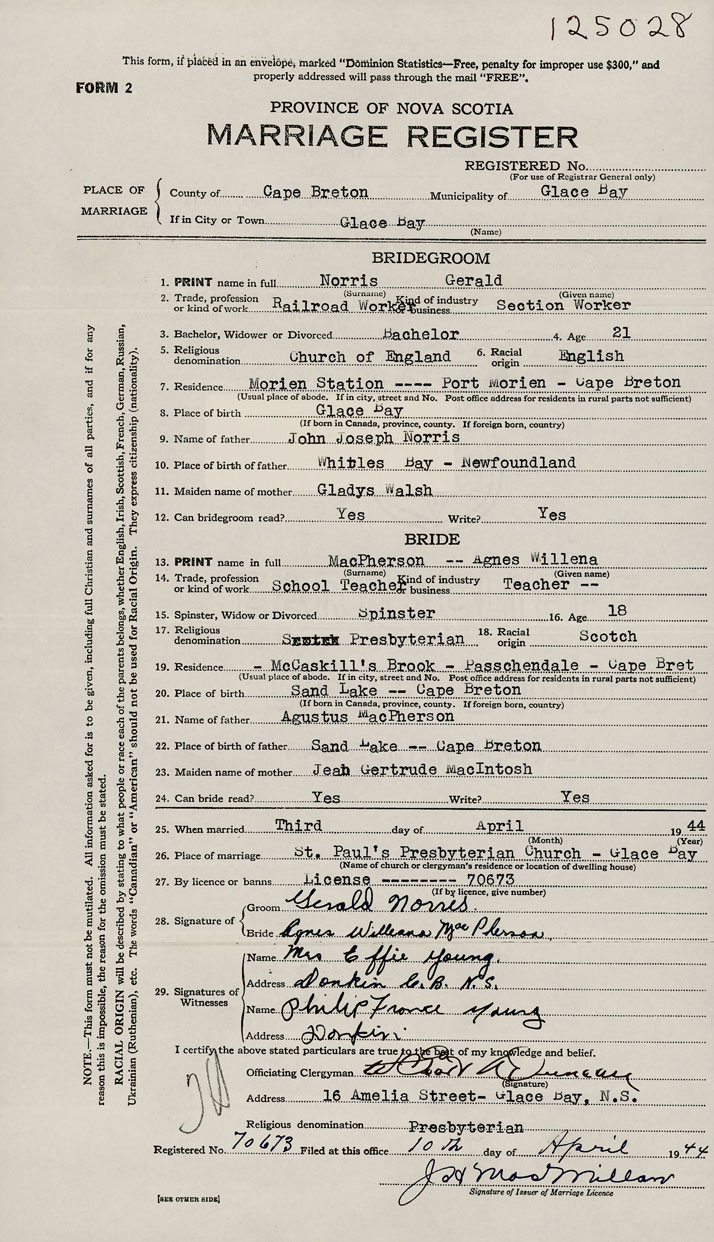 125028
This form, if placed in an envelope, marked "Dominion Statistics—Free, penalty for improper use $300," and
properly addressed will pass through the mail "FREE".
FORM 2
PROVINCE OF NOVA SCOTIA
MARRIAGE REGISTER
REGISTERED No.
(For use of Registrar General only)
PLACE OF MARRIAGE
County of Cape Breton Municipality of Glace Bay
If in City or Town Glace Bay
(Name)
BRIDEGROOM
1. PRINT name in full Norris Gerald
(Surname) (Given name)
2. Trade, profession or kind of work Railroad Worker Kind of industry business Section Worker
3. Bachelor, Widower or Divorced Bachelor 4. Age 21
5. Religious denomination Church of England 6. Racial origin English
7. Residence Morien Station ---- Port Morien - Cape Breton
(Usual place of abode. If in city, street and No. Post office address for residents in rural parts not sufficient)
8. Place of birth Glace Bay
(If born in Canada, province, county. If foreign born, country)
9. Name of father John Joseph Norris
10. Place of birth of father Whitles Bay - Newfoundland
11. Maiden name of mother Gladys Walsh
12. Can bridegroom read? Yes Write? Yes
BRIDE
13. PRINT name in full MacPherson -- Agnes Willena
(Surname) (Given name)
14. Trade, profession or kind of work School Teacher Kind of industry business Teacher --
15. Spinster, Widow or Divorced Spinster 16. Age 18
17. Religious denomination Presbyterian 18. Racial origin Scotch
19. Residence - McCaskill's Brook - Passchendale - Cape Bret
(Usual place of abode. If in city, street and No. Post office address for residents in rural parts not sufficient)
20. Place of birth Sand Lake -- Cape Breton
(If born in Canada, province, county. If foreign born, country)
21. Name of father Agustus MacPherson
22. Place of birth of father Sand Lake -- Cape Breton
23. Maiden name of mother Jean Gertrude MacIntosh
24. Can bride read? Yes Write? Yes
25. When married Third day of April 1944
(Month) (Year)
26. Place of marriage St. Paul's Presbyterian Church - Glace Bay
(Name of church or clergyman's residence or location of dwelling house)
27. By licence or banns License -------- 70673
(If by licence, give number)
28. Signature of
Groom Gerald Norris
Bride Agnes Willena MacPherson
29. Signatures of Witnesses
Name Mrs Effie Young
Address Donkin C.B. N.S.
Name Philip France Young
Address Donkin
I certify the above stated particulars are true to the best of my knowledge and belief.
Officiating Clergyman
(Signature)
Address 16 Amelia Street- Glace Bay, N.S.
Religious denomination Presbyterian
Registered No. 70673 Filed at this office 10th day of April 1944
J H MacMillan
Signature of Issuer of Marriage Licence
[SEE OTHER SIDE]
NOTE.—This form must not be mutilated. All information asked for is to be given, including full Christian and surnames of all parties, and if for any
reason this is impossible, the reason for the omission must be stated.
RACIAL ORIGIN will be described by stating to what people or race each of the parents belongs, whether English, Irish, Scottish, French, German, Russian,
Ukrainian (Ruthenian), etc. The words "Canadian" or "American" should not be used for Racial Origin. They express citizenship (nationality).